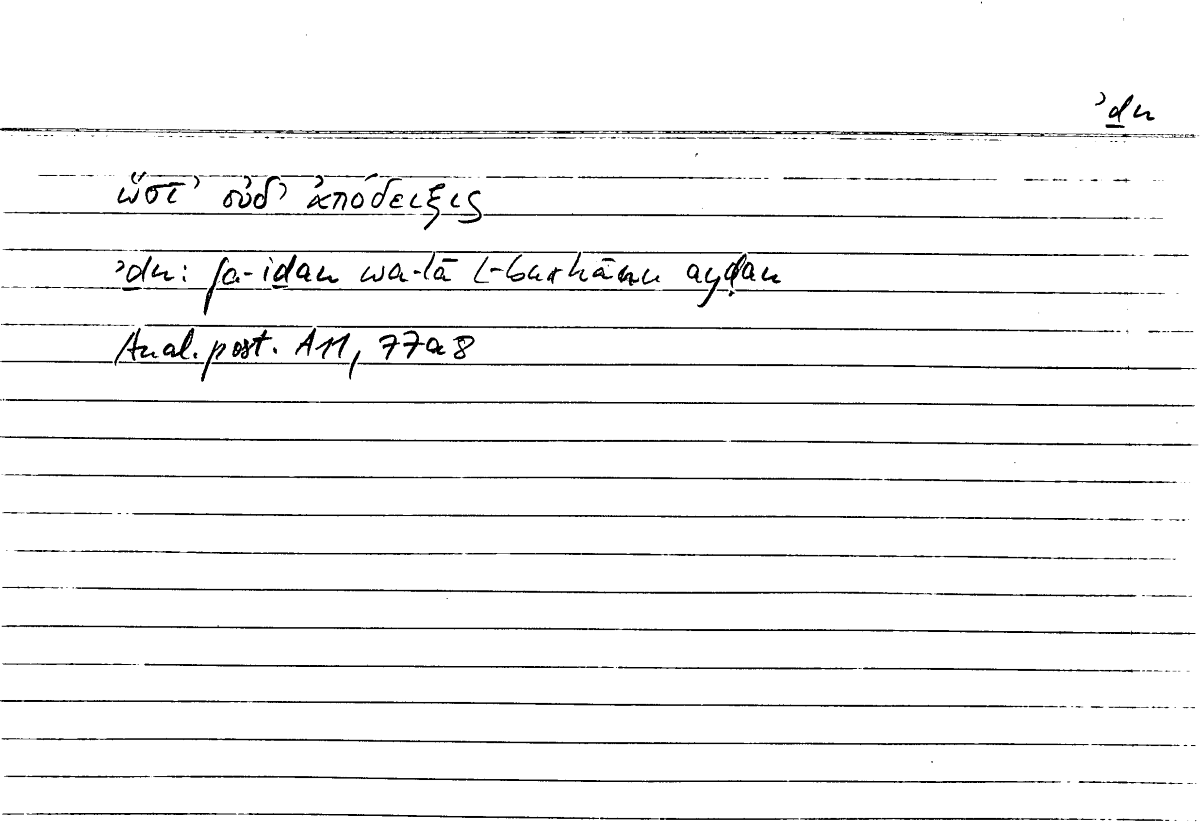 ʾḏn
ὥστ' οὐδ' ἀπόδειξις
ʾḏn: fa-iḏan wa-lā l-burhānu ayḍan
Anal. post. A11, 77a8